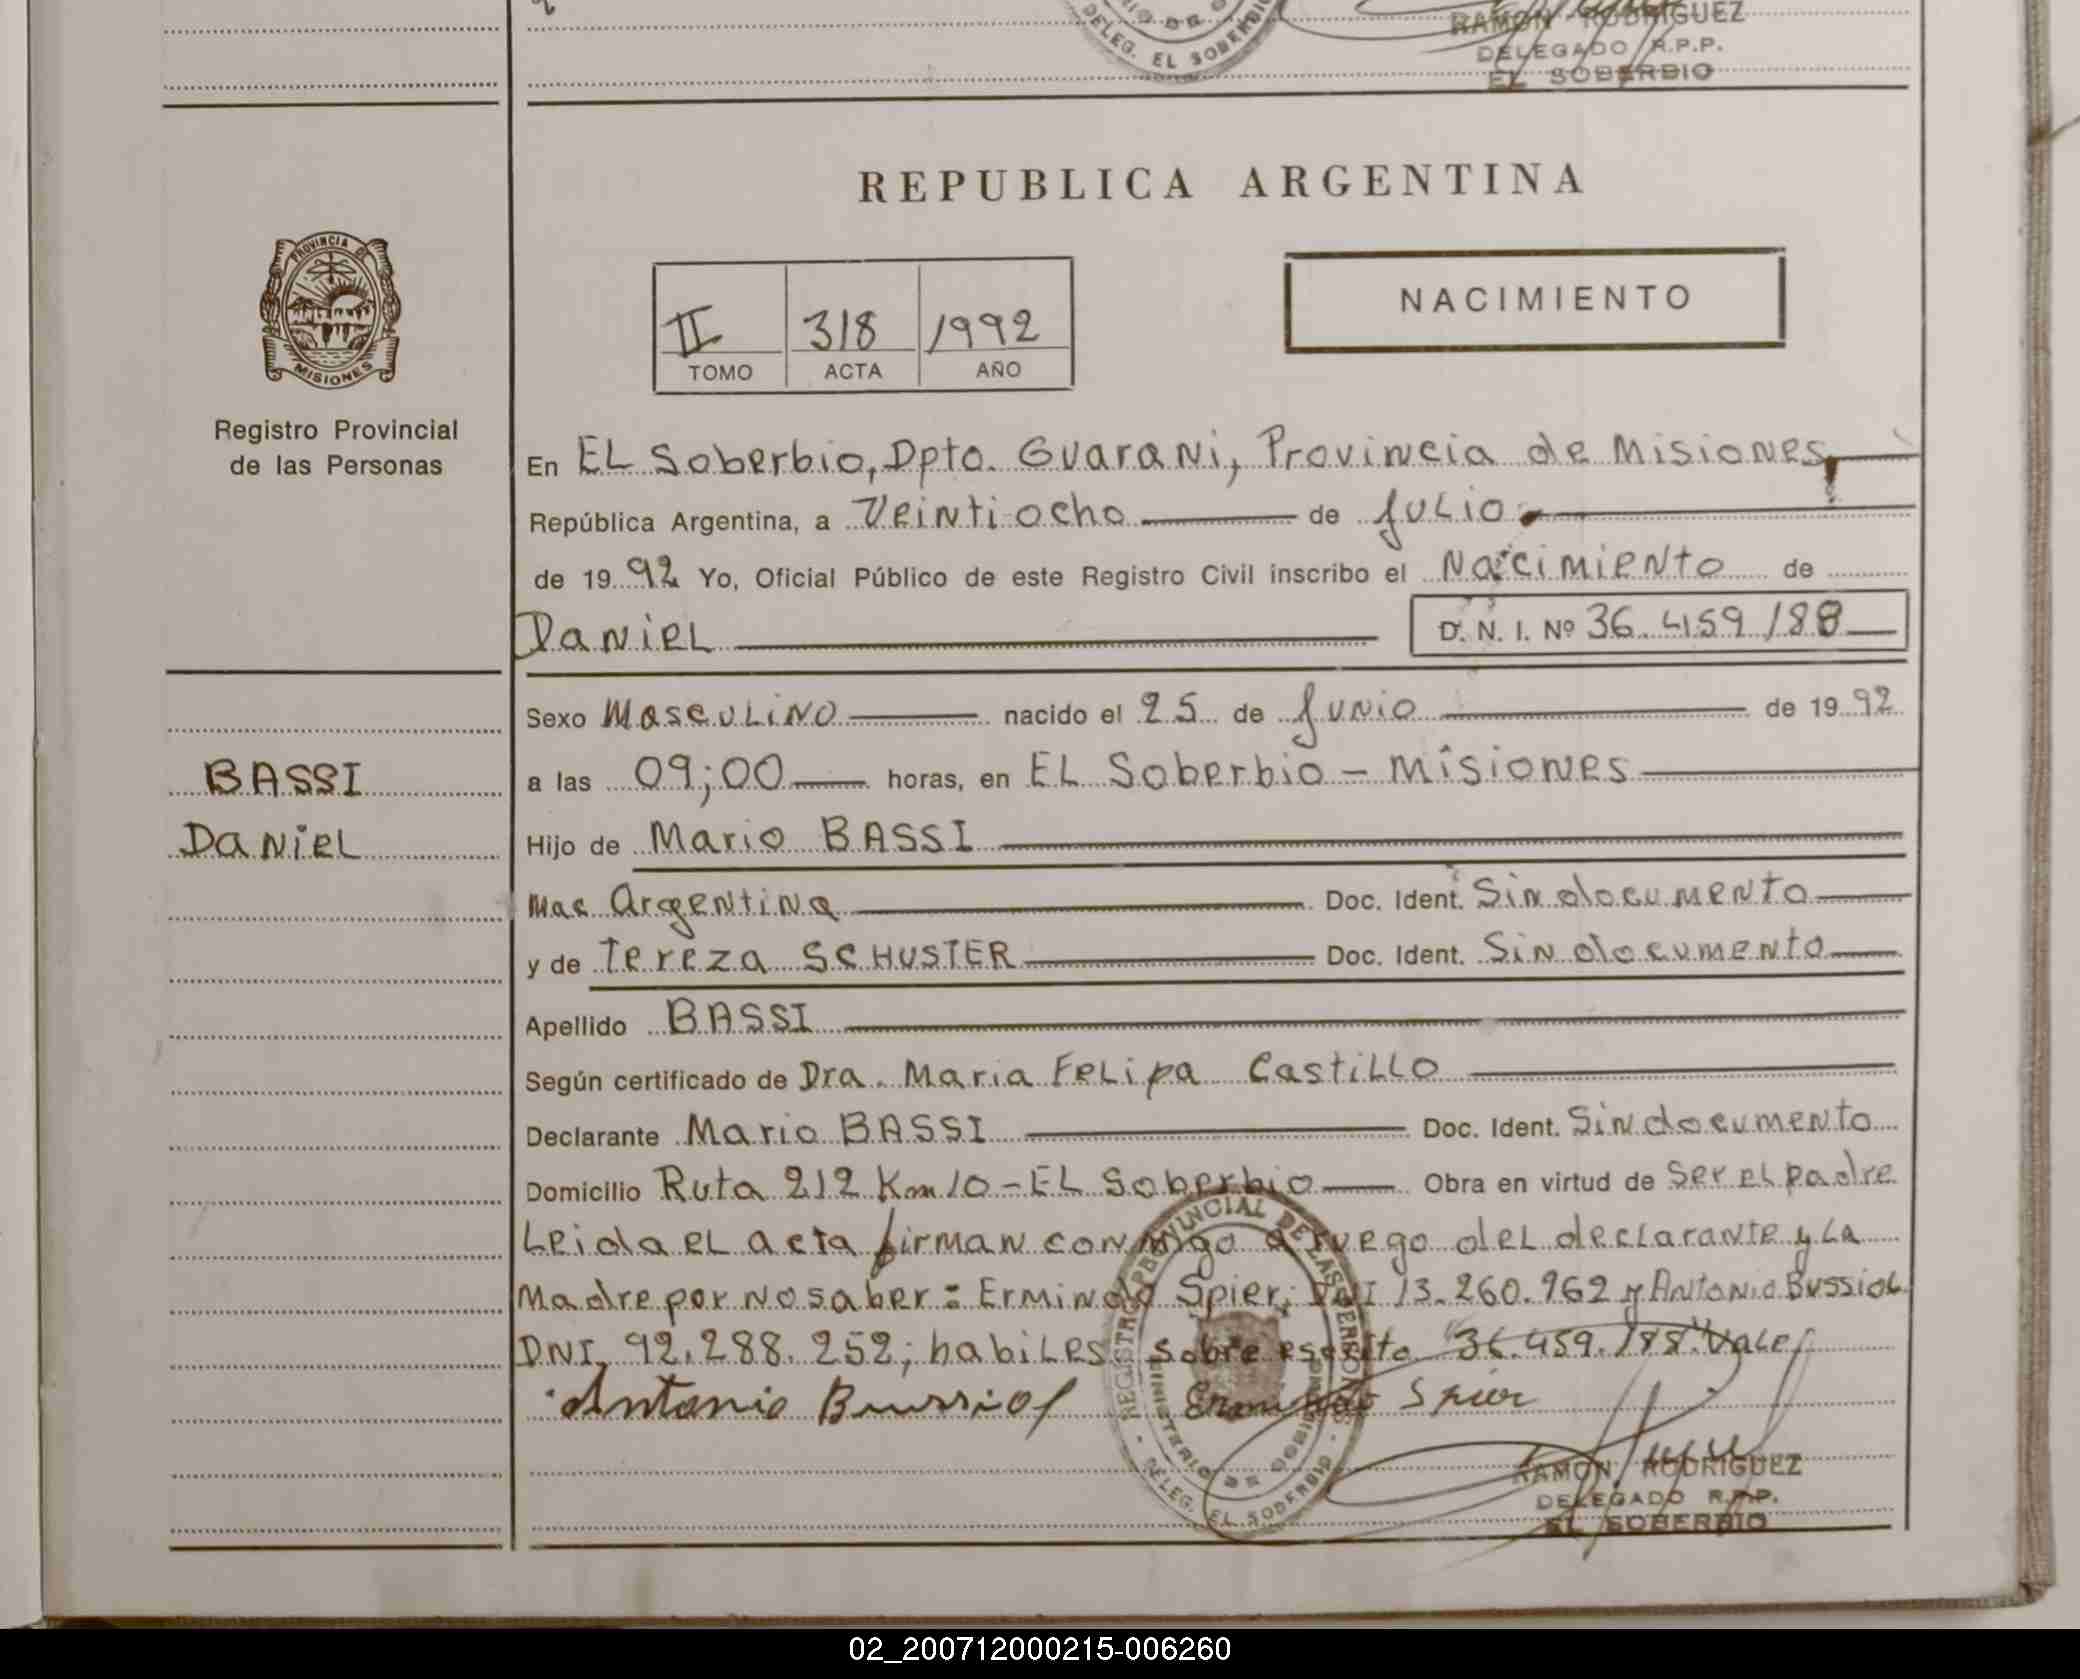 DELEG. EL SOBERBIO
RAMON RODRIGUEZ
DELEGADO R.P.P.
EL SOBERBIO
REPUBLICA ARGENTINA
PROVINCIA DE
MISIONES
Registro Provincial
de las Personas
II 318 1992
TOMO ACTA AÑO
NACIMIENTO
En EL Soberbio, Dpto. Guarani, Provincia de Misiones
República Argentina, a Veintiocho de Julio
de 1992 Yo, Oficial Público de este Registro Civil inscribo el Nacimiento de
Daniel D. N. I. Nº 36.459.188
Sexo Masculino nacido el 25 de Junio de 1992
BASSI
Daniel
a las 09;00 horas, en EL Soberbio - Misiones
Hijo de Mario BASSI
Nac Argentina Doc. Ident. Sin documento
y de Tereza SCHUSTER Doc. Ident. Sin documento
Apellido BASSI
Según certificado de Dra. Maria Felipa Castillo
Declarante Mario BASSI Doc. Ident. Sin documento
Domicilio Ruta 212 Km 10 - EL Soberbio Obra en virtud de Ser el padre
Leida el acta firman conmigo a ruego del declarante y La
Madre por no saber: Ermindo Spier; DNI 13.260.962 y Antonio Bussiol
DNI 92.288.252; habiles sobre escrito "36.459.188" Vale
Antonio Bussiol Ermindo Spier
REGISTRO PROVINCIAL DE LAS PERSONAS
MINISTERIO DE GOBIERNO
DELEG. EL SOBERBIO
RAMON RODRIGUEZ
DELEGADO R.P.P.
EL SOBERBIO
02_200712000215-006260